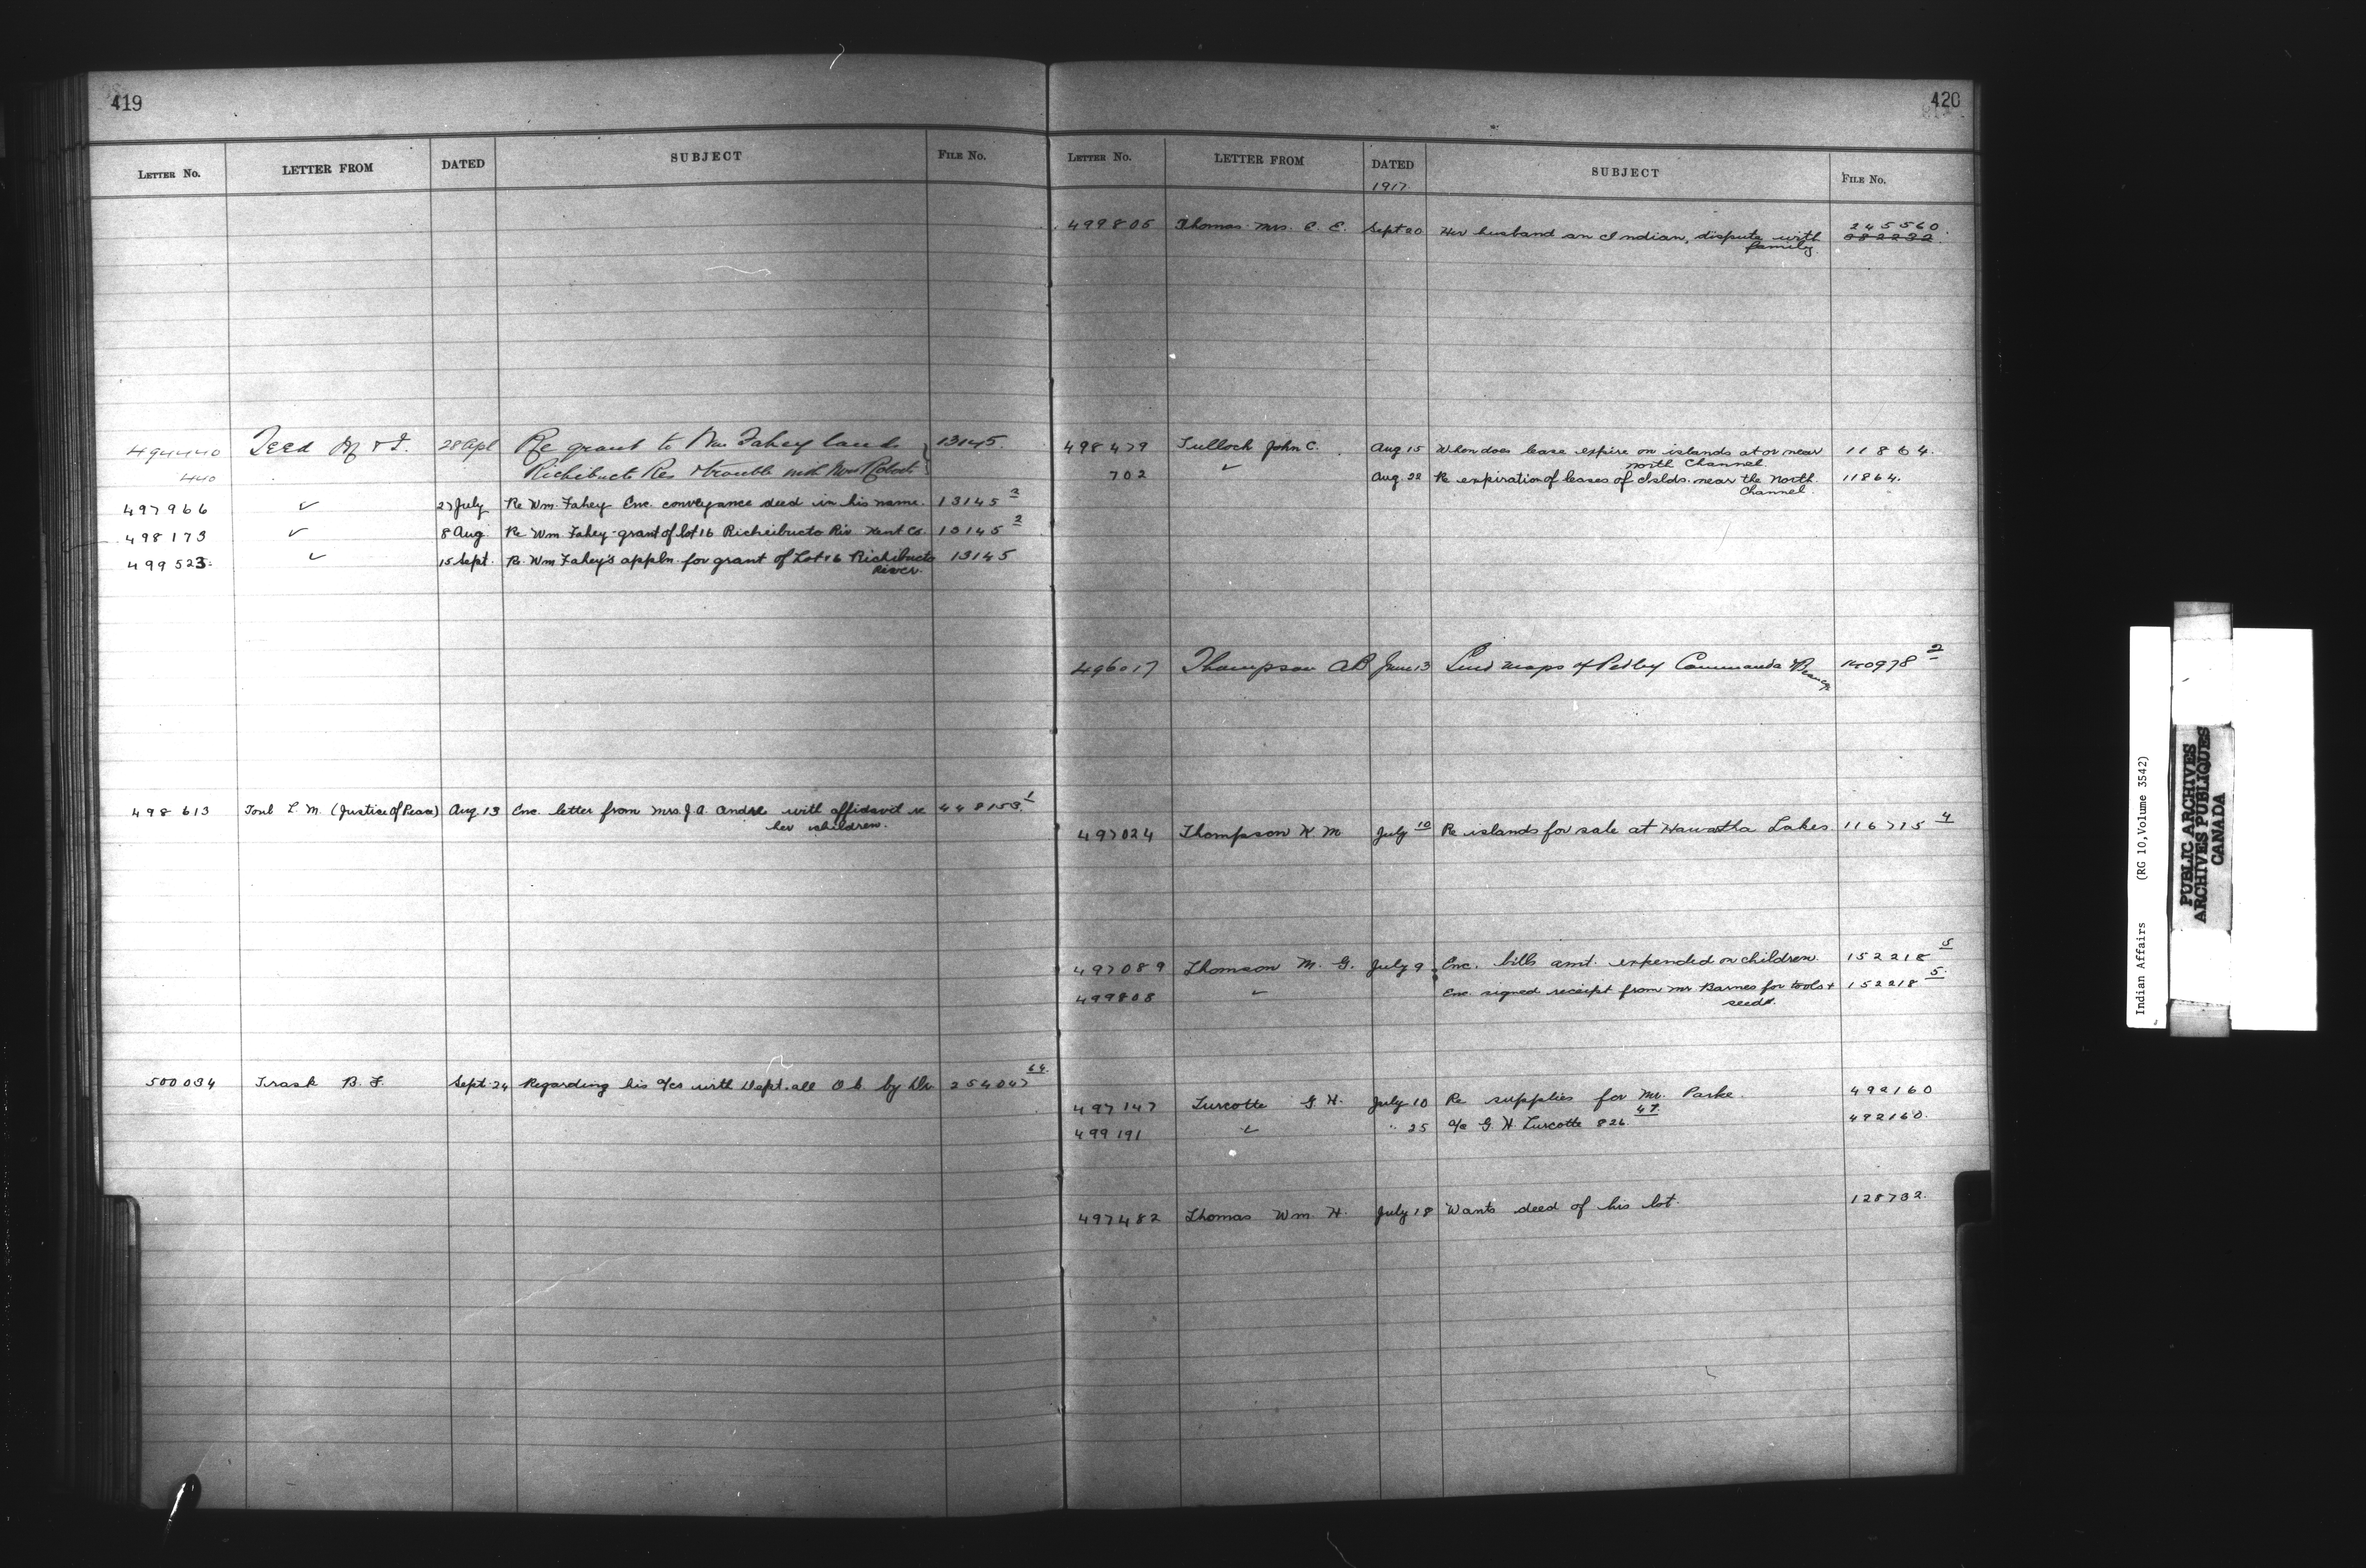 419
LETTER NO. LETTER FROM DATED SUBJECT FILE NO.
494440 Teed M & T. 28 Apl Re grant to Wm Fahey lands 13145.
440 Richibucto Res trouble with
497966 ✓ 27 July Re Wm. Fahey Enc. conveyance deed in his name. 13145 2
498173 ✓ 8 Aug Re Wm Fahey-grant of lot 16 Richibucto Riv Kent Co. 13145 2
499523. ✓ 15 Sept. Re. Wm Fahey's appln. for grant of Lot 16 Richibucto 13145
River.
498613 L. M. (Justice of Peace) Aug 13 Enc. letter from Mrs. J. A. Andre with affidavit re 448153. 1
her children.
500034 Trask B. F. Sept. 24 Regarding his a/cs with Dept. all O.k. by 254047 64
420
LETTER NO. LETTER FROM DATED SUBJECT FILE NO.
1917.
499805 Thomas Mrs. C. E. Sept 20 Her husband an Indian, dispute with 245560.
family. 282232.
498479 Tulloch John C. Aug 15 When does lease expire on islands at or near 11864.
north Channel.
702 ✓ Aug. 22 Re expiration of leases of Islds. near the North 11864.
Channel.
496017 Thompson AB June 13 Send maps of Pedley Commanda & 140978 2
497024 Thompson H M July 10 Re islands for sale at Hawatha Lakes 116775 4
497089 Thomson M. G. July 9. Enc. bills amt. expended on children. 152218 5
499808 ✓ Enc. signed receipt from Mr Barnes for tools + 152218 5.
seeds.
497147 Turcotte G. H. July 10 Re supplies for Mr. Parke. 492160
499191 ✓ " 25 a/c G. H. Turcotte 826. 47. 492160.
497482 Thomas Wm. H. July 18 Wants deed of his lot. 128732.
Indian Affairs (RG 10, Volume 3542)
PUBLIC ARCHIVES
ARCHIVES PUBLIQUES
CANADA